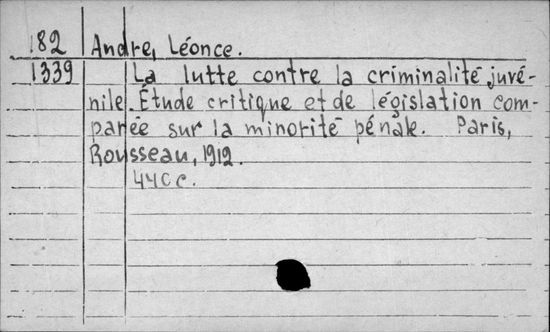 182 Andre, Léonce.
1339 La lutte contre la criminalité juvé-
nile. Étude critique et de législation com-
parée sur la minorité pénale. Paris,
Rousseau, 1912.
440 c.